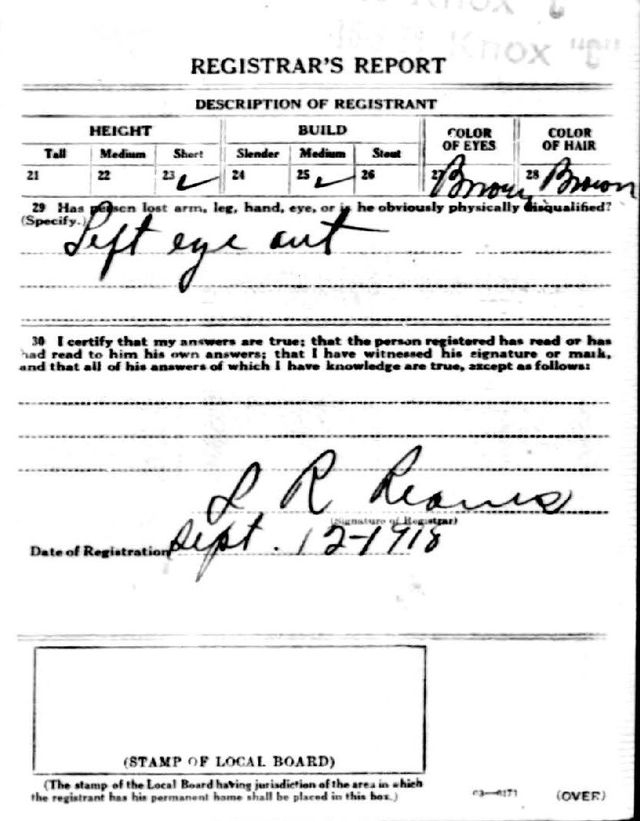 Knox "J"
REGISTRAR'S REPORT
DESCRIPTION OF REGISTRANT
HEIGHT BUILD COLOR OF EYES COLOR OF HAIR
Tall Medium Short Slender Medium Stout
21 22 23 ✓ 24 25 ✓ 26 27 Brown 28 Brown
29 Has person lost arm, leg, hand, eye, or is he obviously physically disqualified?
(Specify.)
Left eye out
30 I certify that my answers are true; that the person registered has read or has
had read to him his own answers; that I have witnessed his signature or mark,
and that all of his answers of which I have knowledge are true, except as follows:
L R Reams
(Signature of Registrar)
Date of Registration Sept. 12-1918
(STAMP OF LOCAL BOARD)
(The stamp of the Local Board having jurisdiction of the area in which
the registrant has his permanent home shall be placed in this box.)
03—6171 (OVER)